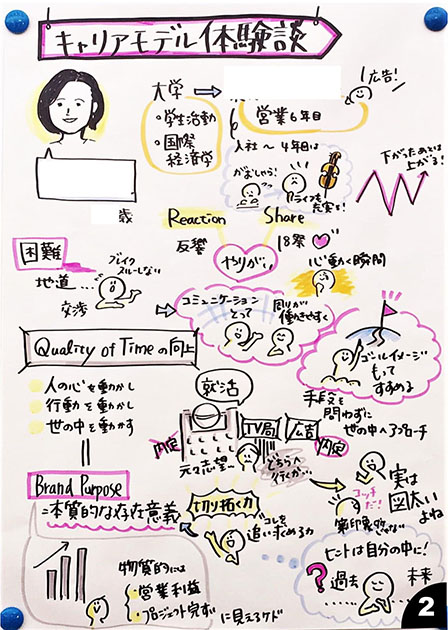 キャリアモデル体験談
大学
・学生活動
・国際
経済学
広告!
営業6年目
入社〜4年目は
がむしゃら!
ライフも
充実を!
下がったあとは
上がる!
歳
Reaction
Share
反響
共祭
やりがい
心動く瞬間
困難
ブレイク
スルーしない
地道…
交渉
コミュニケーション
とって
周りが
働きやすく
ゴールイメージ
もって
すすめる
Quality of Timeの向上
人の心を動かし
行動を動かし
世の中を動かす
就活
内定
TV局
広告
内定
元々志望〜
どちらへ
行くか…
手段を
問わずに
世の中へアプローチ
コッチ
だ!
実は
図太い
よね
第一印象じゃない
Brand Purpose
=本質的な存在意義
切り拓く力
コレを
追い求める力
ヒントは自分の中に!
?
過去
未来
物質的には
・営業利益
・プロジェクト完了
に見えるケド
2